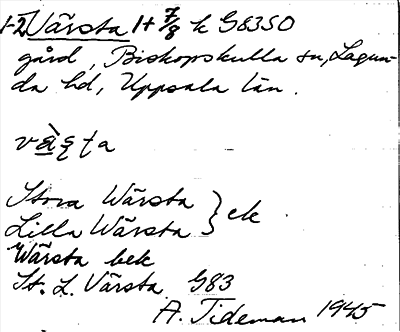 1-2 Värsta 1+7/8 k G83SO
gård, Biskopskulla sn, Lagun-
da hd, Uppsala län.
Stora Wärsta } ek.
Lilla Wärsta
Wärsta bek
St. L. Värsta G83
A. Tideman 1945